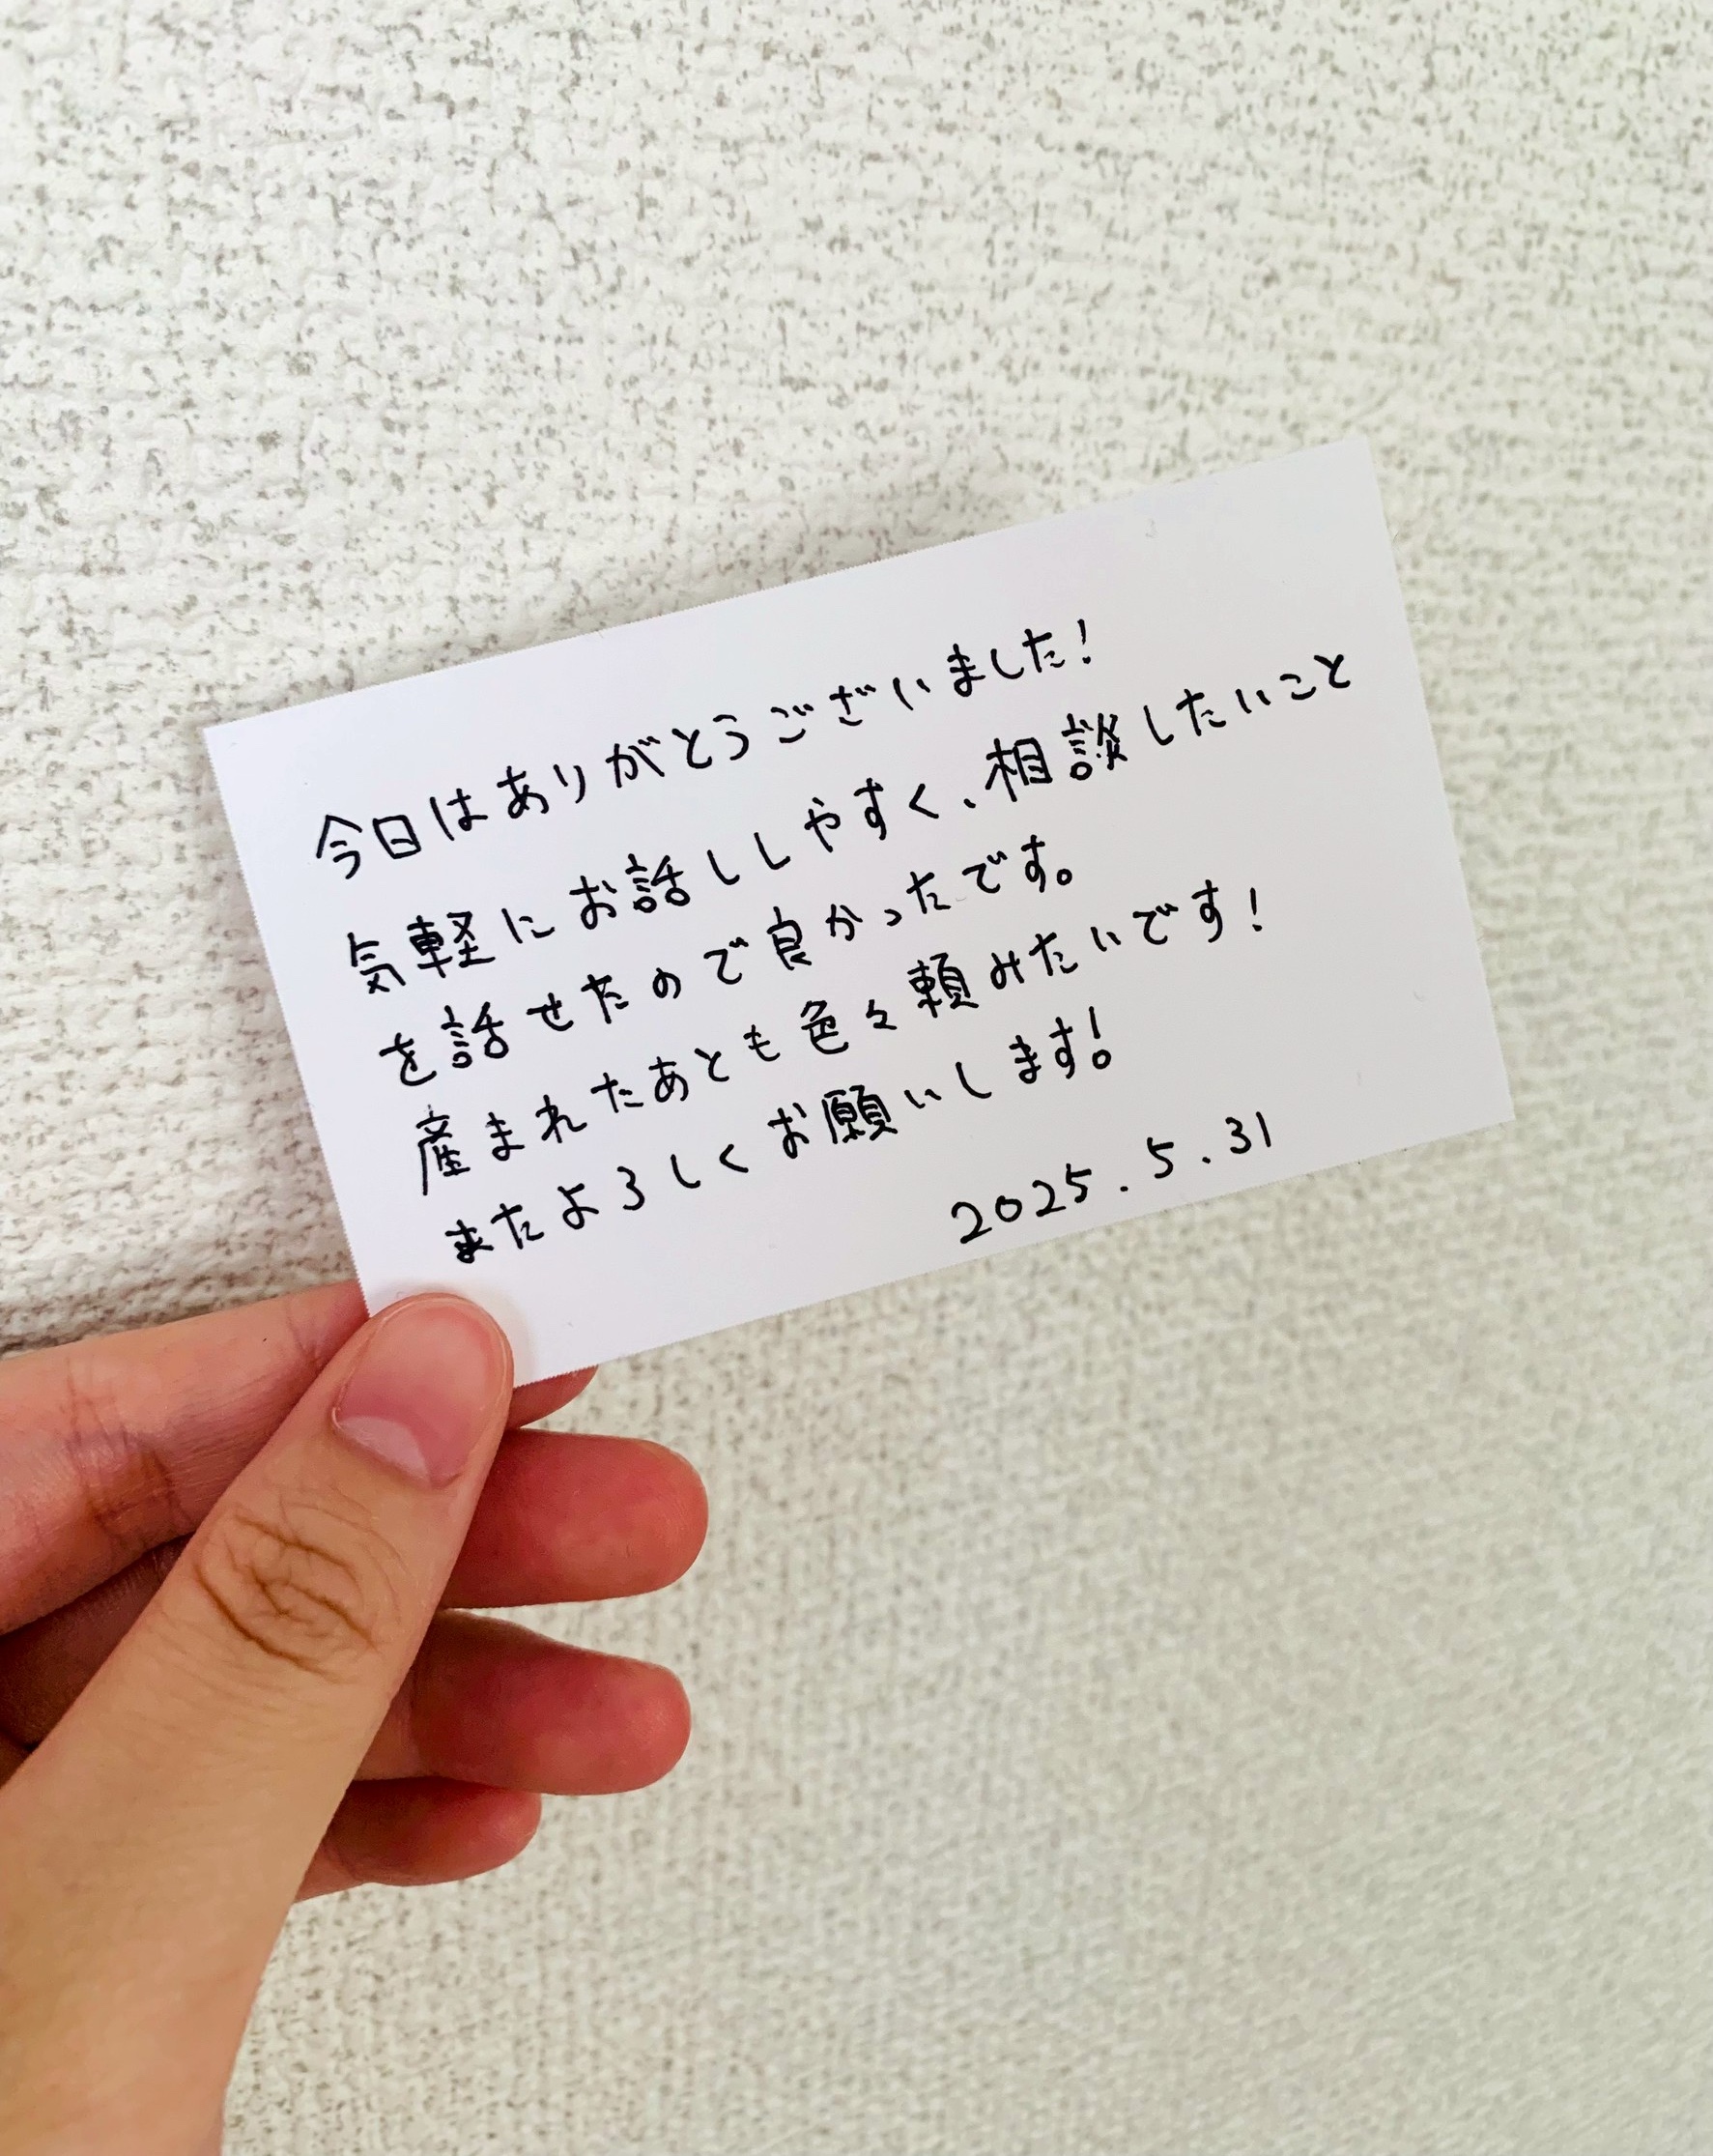 今日はありがとうございました!
気軽にお話ししやすく、相談したいこと
を話せたので良かったです。
産まれたあとも色々頼みたいです!
またよろしくお願いします!
2025.5.31